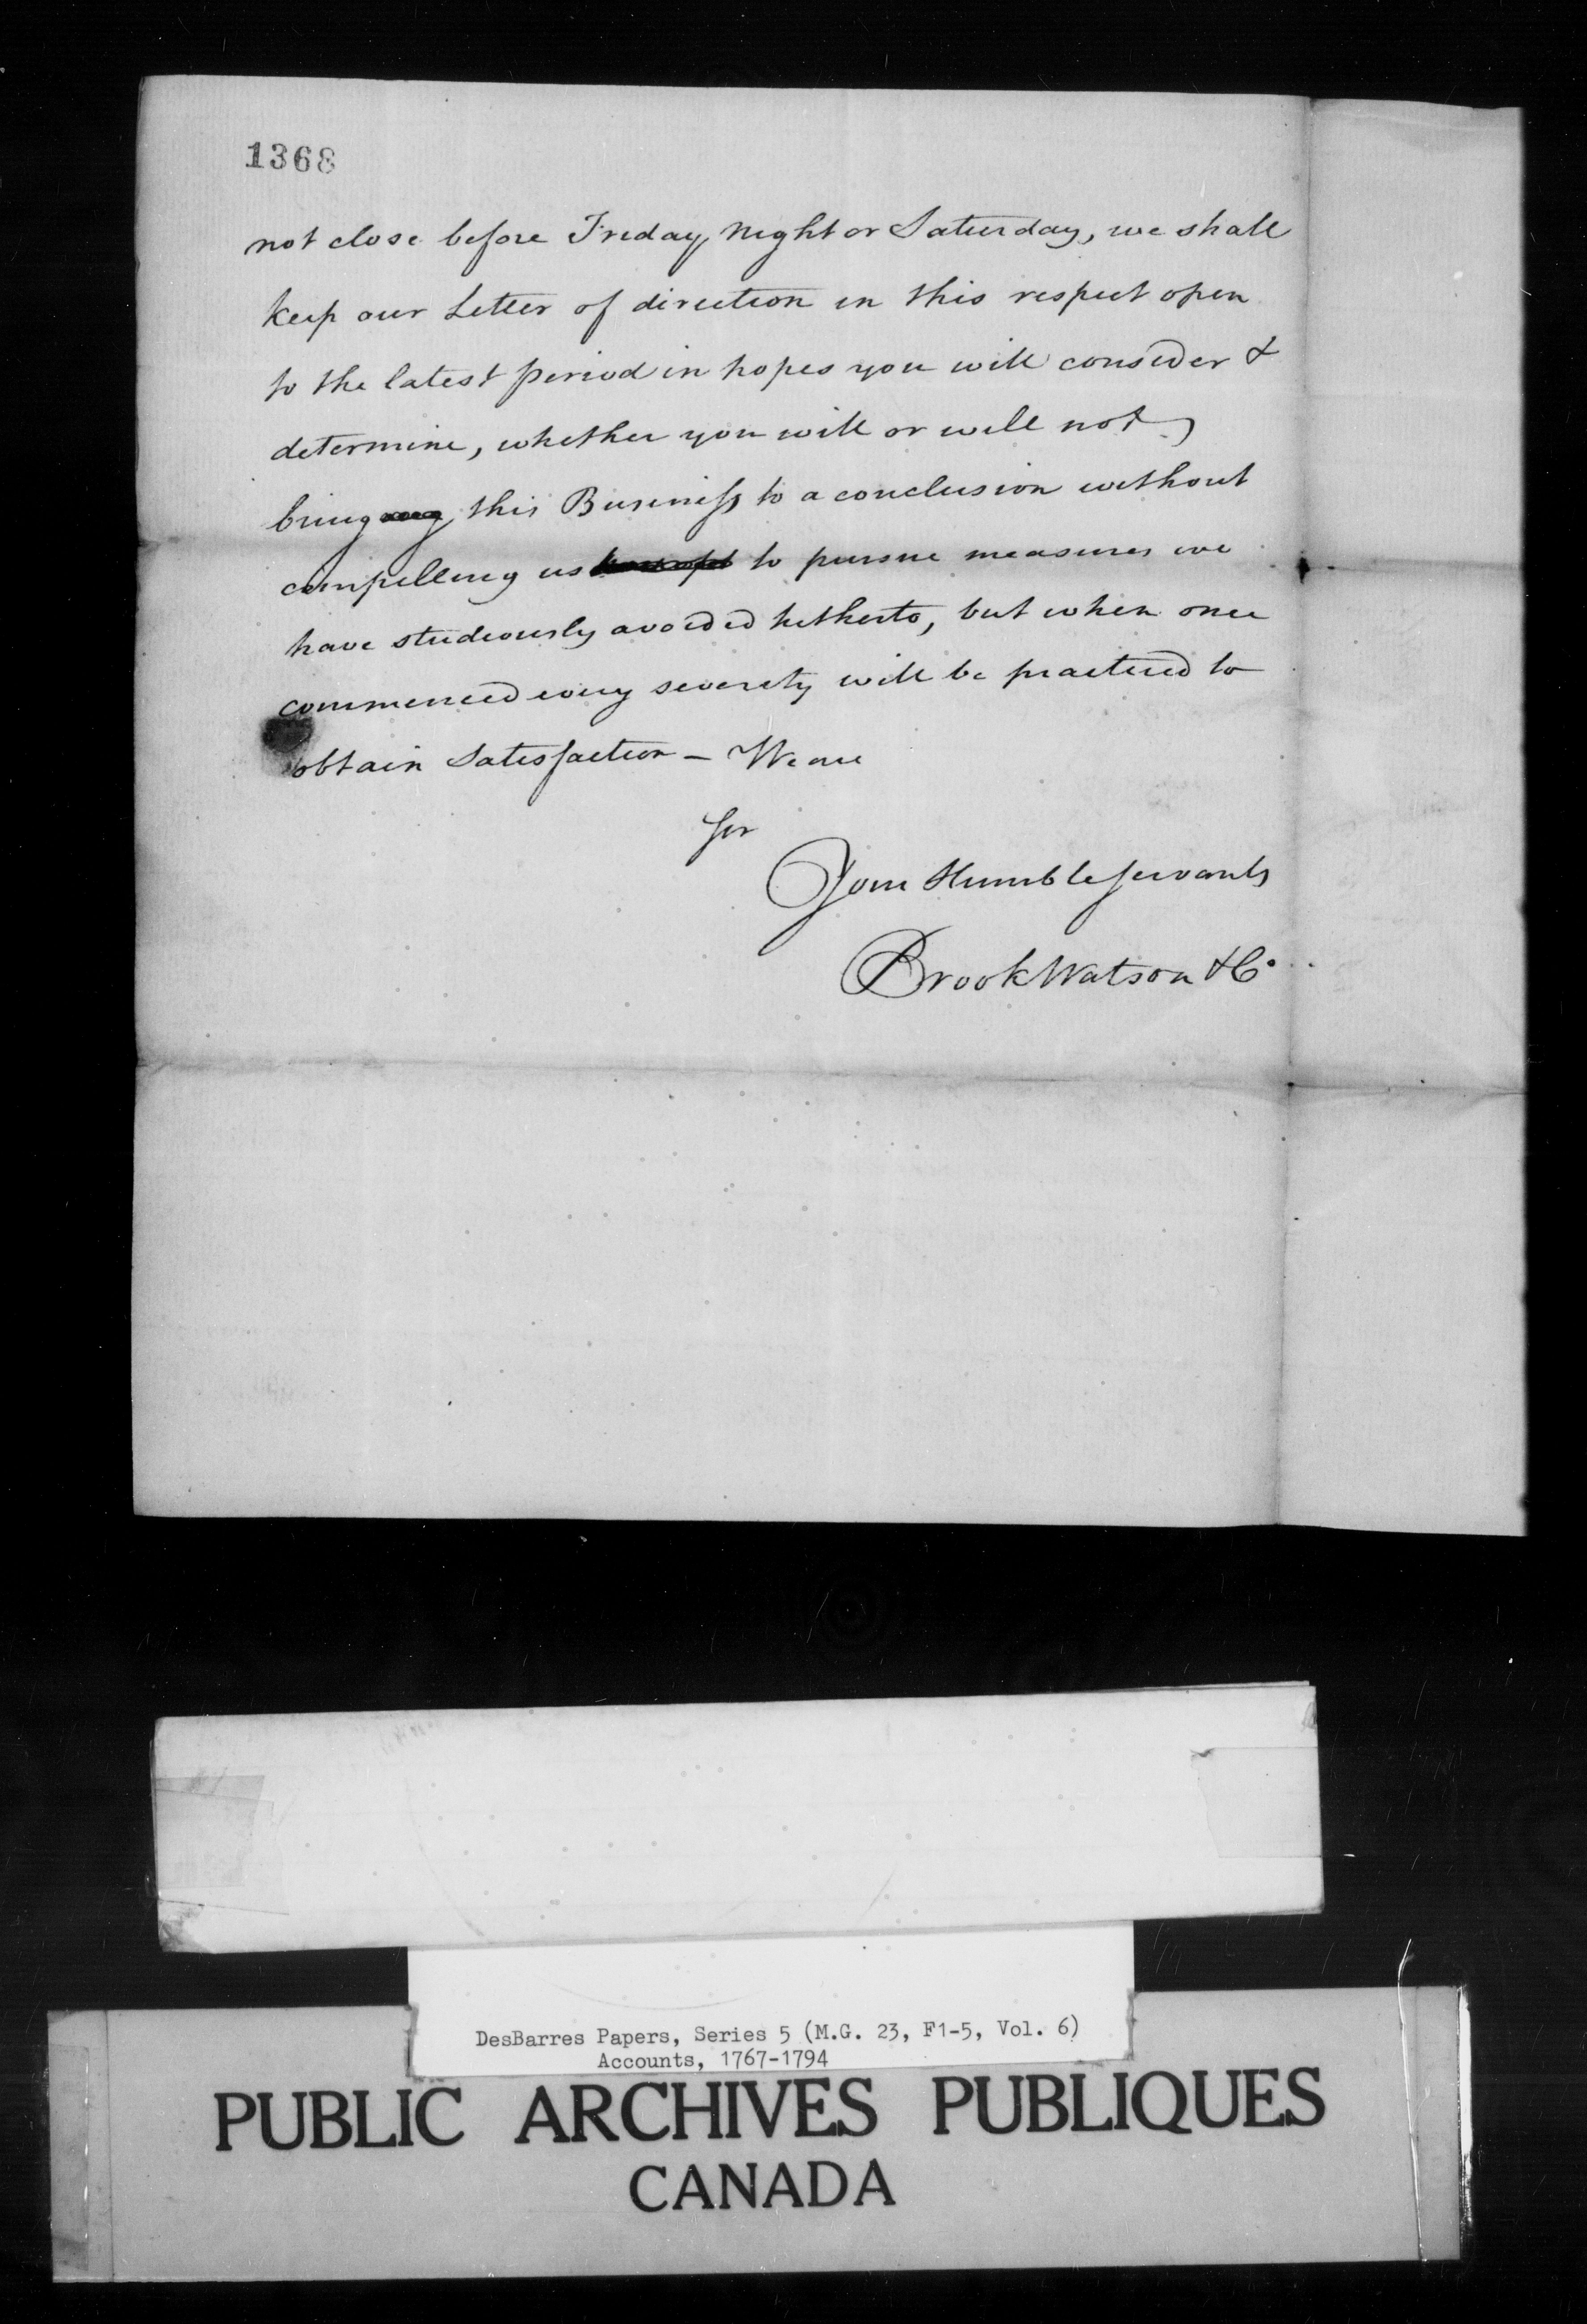 1368
not close before Friday Night or Saturday, we shall
keep our Letter of direction in this respect open
to the latest period in hopes you will consider &
determine, whether you will or will not,
bring this Business to a conclusion without
compelling us to pursue measures we
have studiously avoided hitherto, but when once
commenced every severity will be practiced to
obtain Satisfaction – We are
Sir
Your Humble Servants
Brook Watson & Co.
DesBarres Papers, Series 5 (M.G. 23, F1-5, Vol. 6)
Accounts, 1767-1794
PUBLIC ARCHIVES PUBLIQUES
CANADA